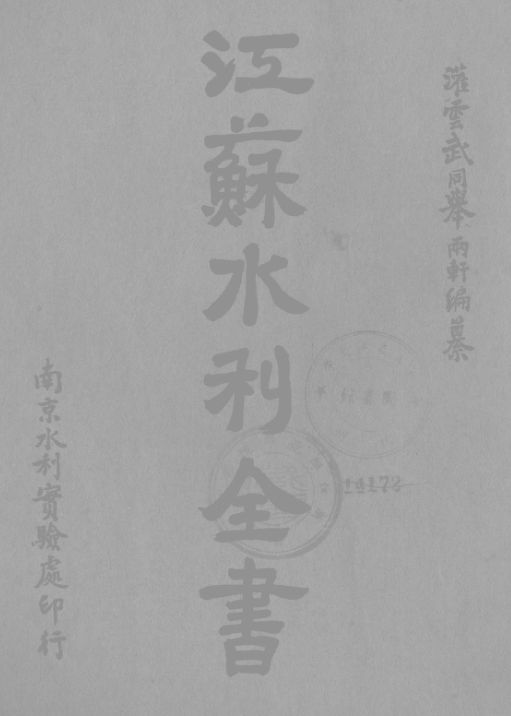 灌雲武同舉兩軒編纂
江蘇水利全書
南京水利實驗處印行
14172